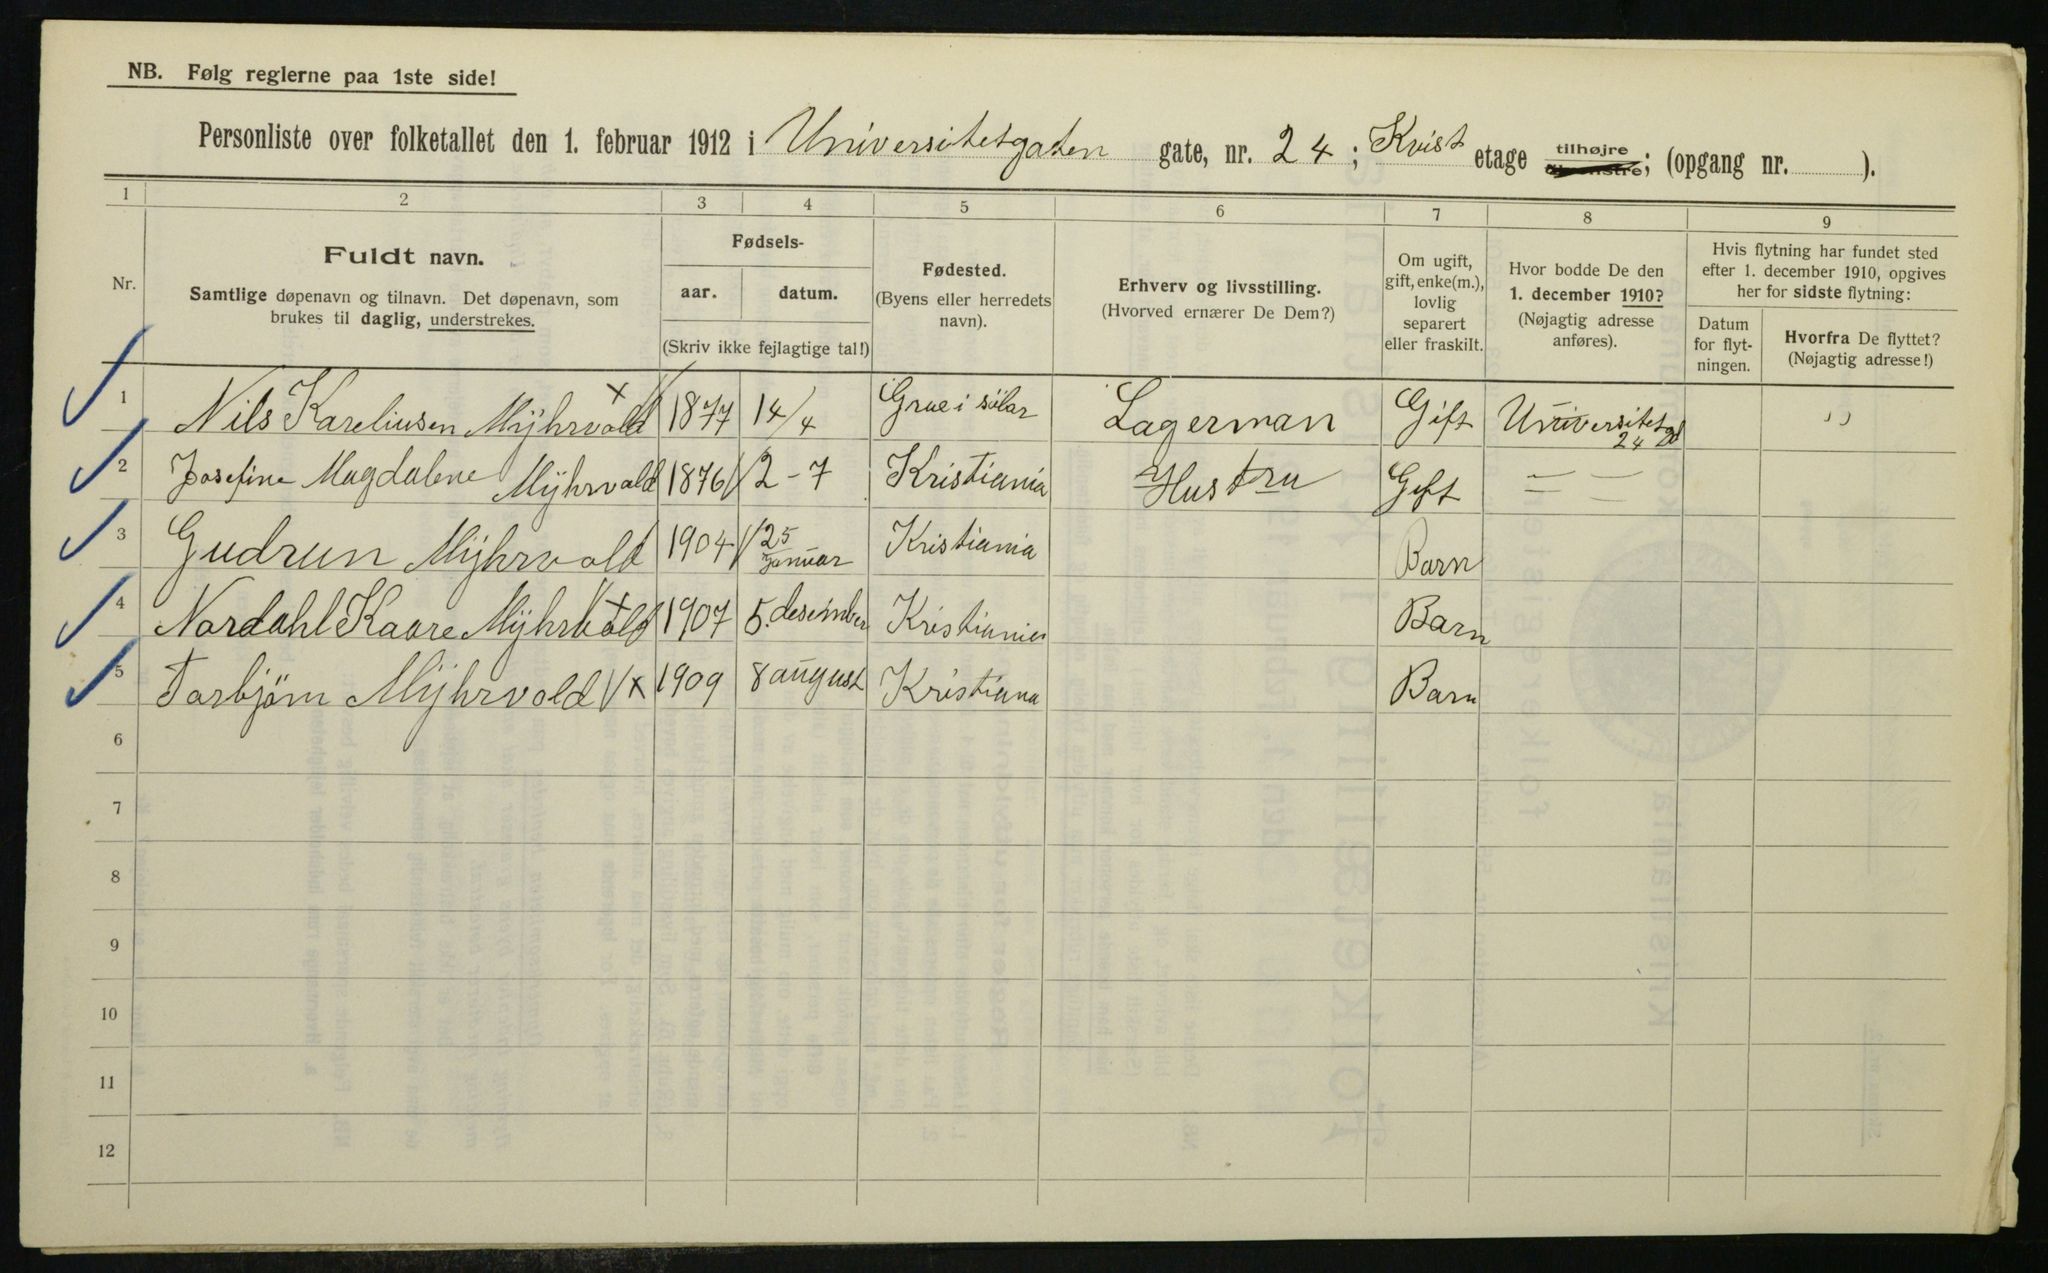 NB. Følg reglerne paa 1ste side!
Personliste over folketallet den 1. februar 1912 i Universitetsgaten gate, nr. 24; Kvist etage tilhøjre; (opgang nr. ).
1 2 3 4 5 6 7 8 9
Nr.
Fuldt navn.
Samtlige døpenavn og tilnavn. Det døpenavn, som
brukes til daglig, understrekes.
Fødsels-
aar. datum.
(Skriv ikke fejlagtige tal!)
Fødested.
(Byens eller herredets
navn).
Erhverv og livsstilling.
(Hvorved ernærer De Dem?)
Om ugift,
gift, enke(m.),
lovlig
separert
eller fraskilt.
Hvor bodde De den
1. december 1910?
(Nøjagtig adresse
anføres).
Hvis flytning har fundet sted
efter 1. december 1910, opgives
her for sidste flytning:
Datum
for flyt-
ningen.
Hvorfra De flyttet?
(Nøjagtig adresse!)
1 Nils Kareliusen Mÿhrvold 1877 14/4 Grue i sölør Lagerman Gift Universitetsgd 24 "
2 Josefine Magdalene Mÿhrvold 1876 2-7 Kristiania Hustru Gift — —
3 Gudrun Mÿhrvold 1904 25 Januar Kristiania Barn
4 Nordahl Kaare Mÿhrvold 1907 5. desember Kristiania Barn
5 Torbjörn Mÿhrvold 1909 8 august Kristiana Barn
6
7
8
9
10
11
12